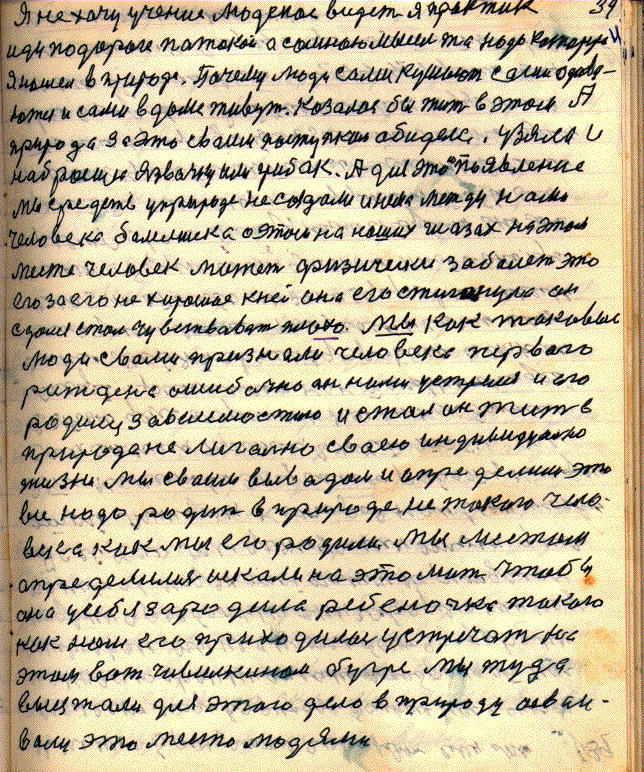 Я не хочу учение людское видет я практик 39
иду по дороге по такой а самною мысел та надо которую
я нашел в природе. Почему люди сами кушают сами одеву-
ются и сами в доме живут. Казалос бы жит в этом А
природа за это своим поступком обидел. Узяла и
набросую язвочку или грибак. А для этого появление
мы средств у природе не создали и нема между нами
человека балелшека о этом на наших глазах на этом
месте человек может физически заболет это
его за его не хорошое к ней она его стиганула он
с доим стал чувствават плохо. Мы как таковые
люди своми признали человека первого
рождене ошибочно он нами устречия и его
родину зависемостию и стал он жит в
природе не лигално своею индивидуално
жизни мы своим вывадом и определили это
все надо родит в природе не такого чело-
века как мы его родили мы местом
определилия искали на это мат чтобы
она у себя зародила ребеночка такого
как нам его приходилос устречат на
этом вот чивилкином бугре мы туда
выезжали для этого дело в природу осваи-
вали это место людями